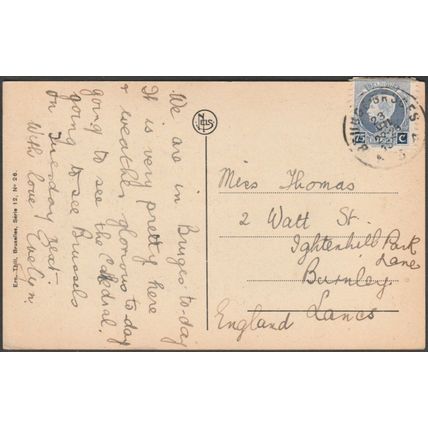 We are in Bruges to-day
It is very pretty here
& weather glorious to-day
going to see the Cathedral.
going to see Brussels
on Tuesday next.
With love. Evelyn.
Ern. Thill, Bruxelles, Série 12, No 26.
NELS
BRUGES
BRUGGE
75
Miss Thomas
2 Watt St.
Ightenhill Park
Lane
Burnley
Lancs
England